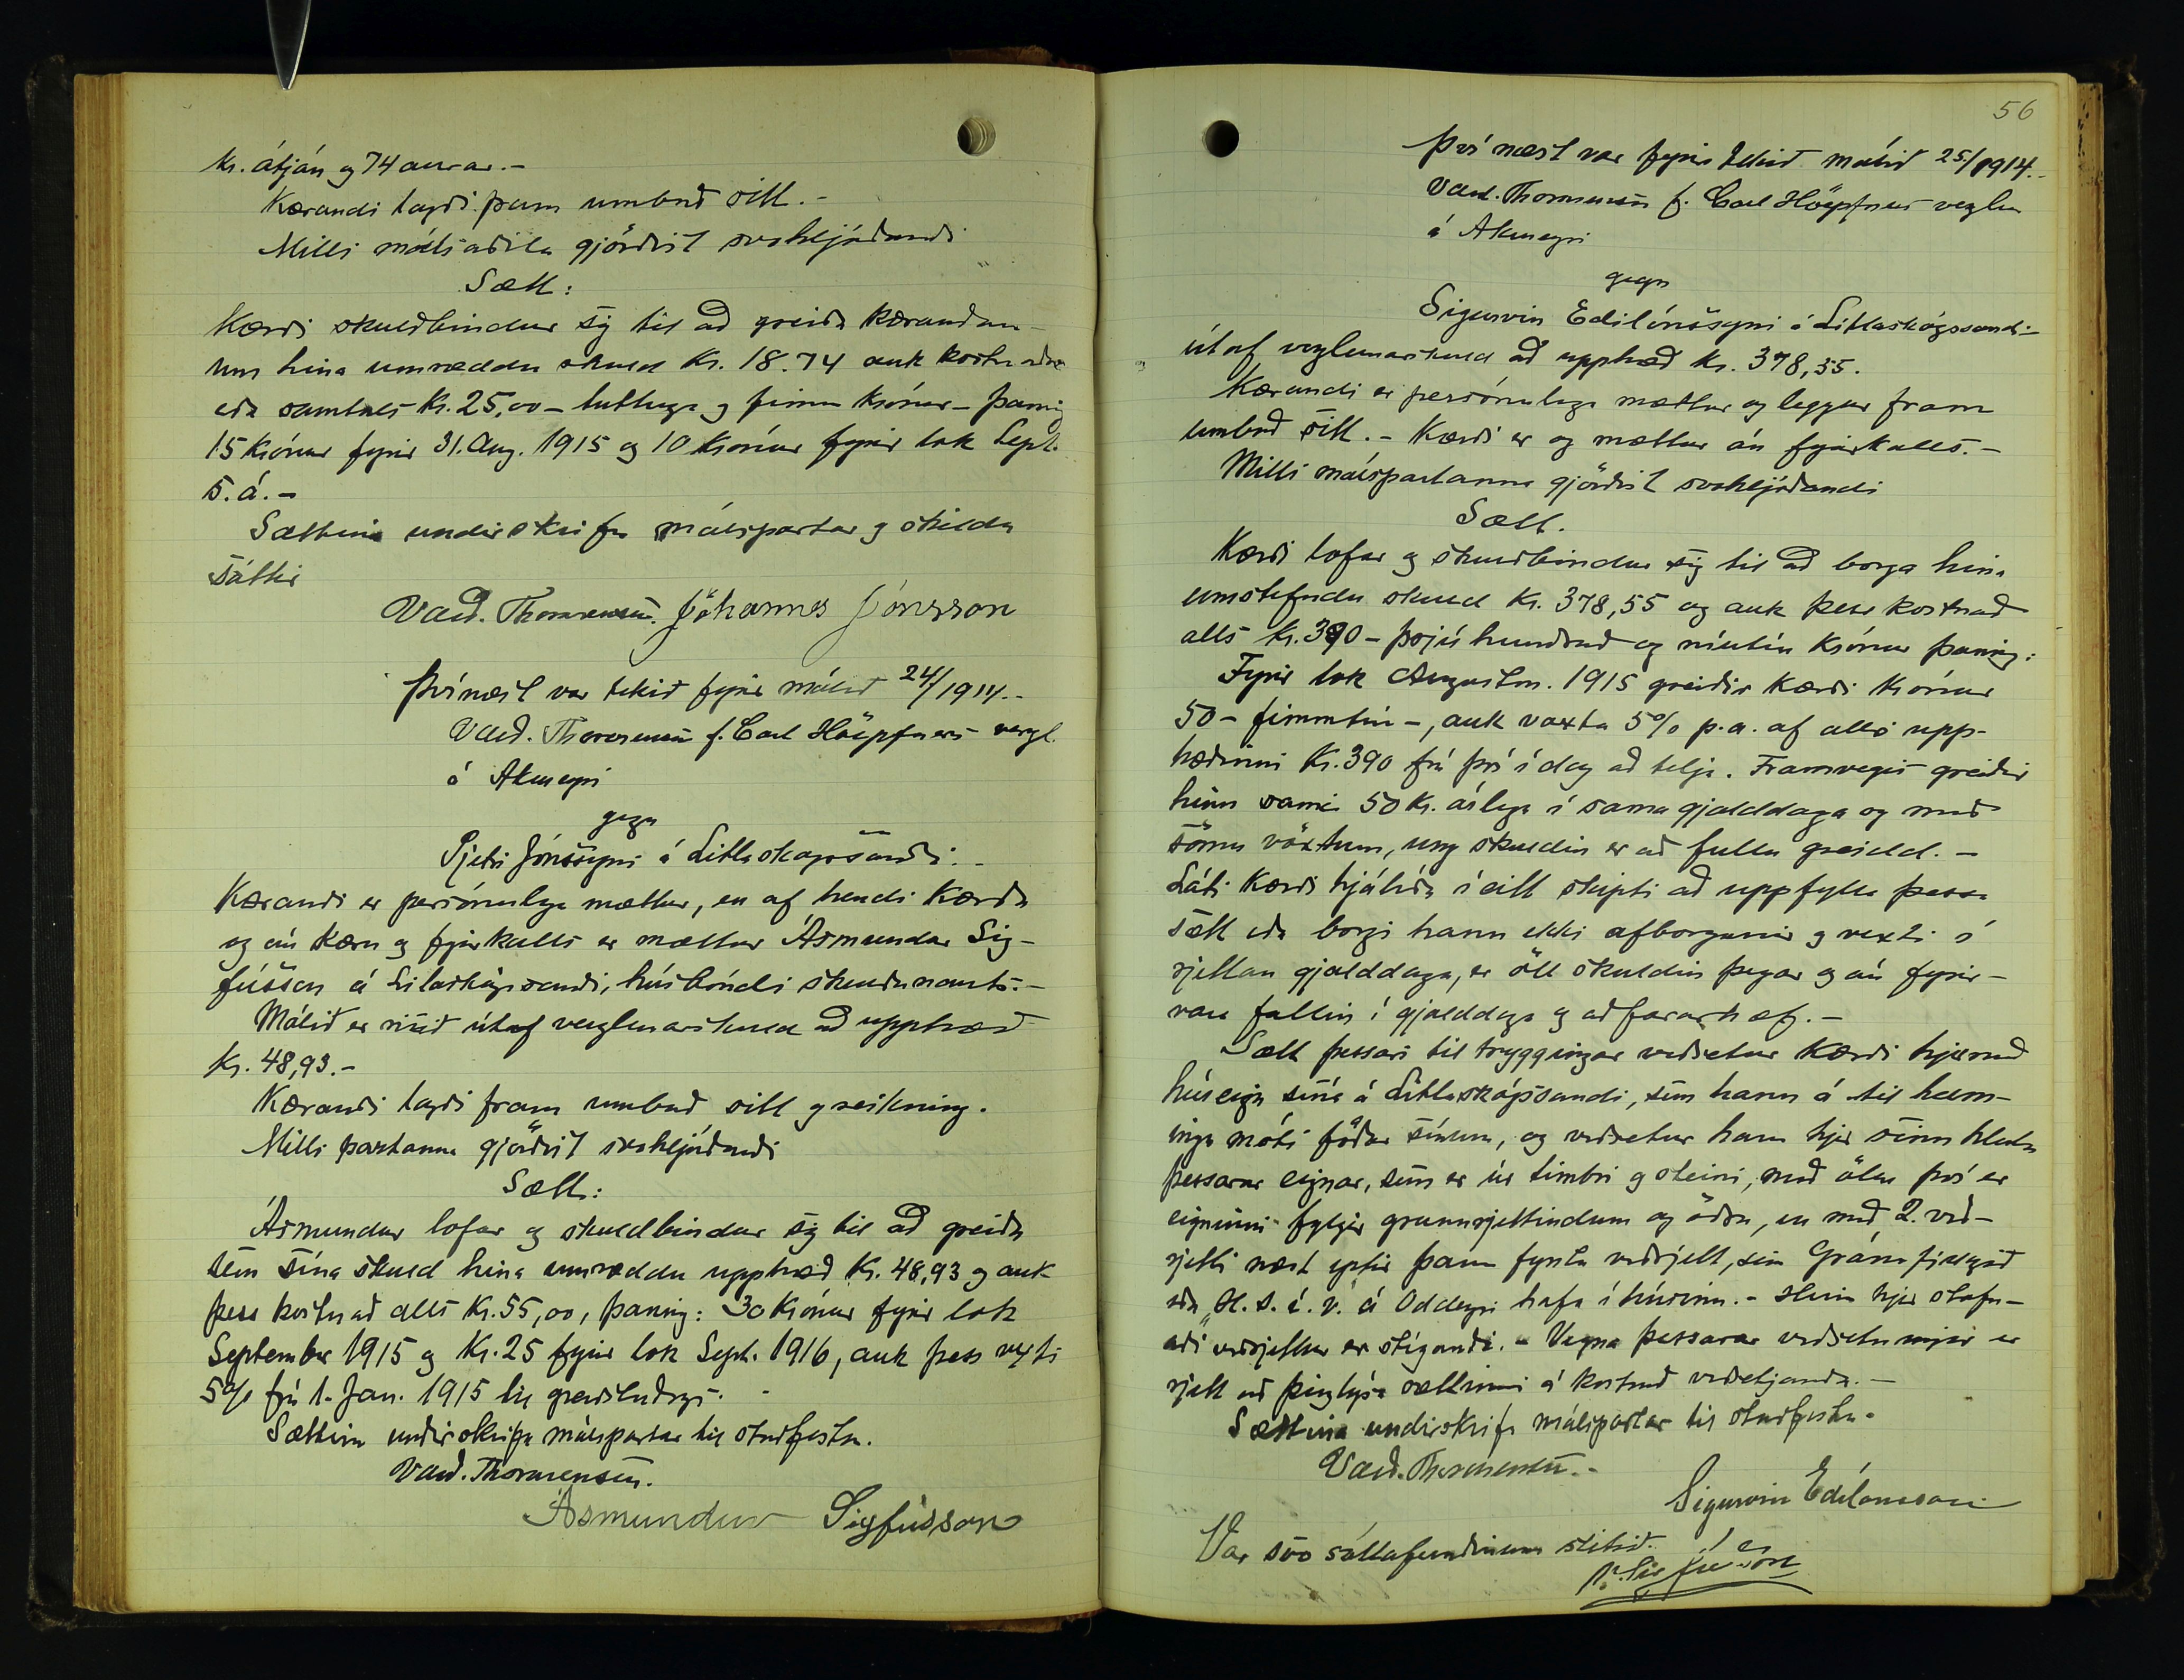 kr. átján og 74 aurar. -
Kærandi lagði fram umboð sitt. -
Milli málsaðila gjörðist svohljóðandi
Sætt:
Kærði skuldbindur sig til að greiða kærandan-
um hina umræddu skuld kr. 18.74 auk kostnaðar
eða samtals kr. 25,00 - tuttugu og fimm krónur - þannig
15 krónur fyrir 31. Aug. 1915 og 10 krónur fyrir lok Sept.
s. á. -
Sættina undirskrifa málspartar og skildu
sáttir
Vald. Thorarensen. Jóhannes Jónsson
Þvínæst var tekið fyrir málið 24/1914. -
Vald. Thorarensen f. Carl Höepfners verzl.
á Akureyri
gegn
Pjetri Jónssyni á Litlaskógssandi. -
Kærandi er persónulega mættur, en af hendi kærða
og án kæru og fyrirkalls er mættur Ásmundur Sig-
fússon á Litlaskógssandi, húsbóndi skuldunauts. -
Málið er risið útaf verzlunarskuld að upphæð
kr. 48,93. -
Kærandi lagði fram umboð sitt og reikning.
Milli partanna gjörðist svohljóðandi
Sætt:
Ásmundur lofar og skuldbindur sig til að greiða
sem sína skuld hina umræddu upphæð kr. 48,93 og auk
þess kostnað alls kr. 55,00, þannig: 30 krónur fyrir lok
September 1915 og kr. 25 fyrir lok Sept. 1916, auk þess vexti
5% frá 1. Jan. 1915 til greiðsludags. -
Sættina undirskrifa málspartar til staðfestu.
Vald. Thorarensen.
Ásmundur Sigfússon
56
Því næst var fyrir tekið málið 25/1914. -
Vald. Thorarensen f. Carl Höepfners verzlun
á Akureyri
gegn
Sigurvin Edilónssyni á Litlaskógssandi -
útaf verzlunarskuld að upphæð kr. 378,55.
Kærandi er persónulega mættur og leggur fram
umboð sitt. - Kærði er og mættur án fyrirkalls. -
Milli málspartanna gjörðist svohljóðandi
Sætt.
Kærði lofar og skuldbindur sig til að borga hina
umstefndu skuld kr. 378,55 og auk þess kostnað
alls kr. 390 - þrjú hundruð og níutíu krónur þannig:
Fyrir lok Augustm. 1915 greiðir kærði krónur
50 - fimmtíu -, auk vaxta 5% p.a. af allri upp-
hæðinni kr. 390 frá því í dag að telja. Framvegis greiðir
hinn sami 50 kr. árlega í sama gjalddaga og með
sömu vöxtum, unz skuldin er að fullu greidd. -
Láti kærði hjálíða í eitt skipti að uppfylla þessa
sætt eða borgi hann ekki afborganir og vexti í
rjettan gjalddaga, er öll skuldin þegar og án fyrir-
vara fallin í gjalddaga og aðfararhæf. -
Sætt þessari til tryggingar veðsetur kærði hjermeð
húseign sína á Litlaskógssandi, sem hann á til helm-
inga móti föður sínum, og veðsetur hann hjer sinn hluta
þessarar eignar, sem er úr timbri og steini, með öllu því er
eigninni fylgir grunnrjettindum og öðru, en með 2. veð-
rjetti næst eptir þann fyrsta veðrjett, sem Gránufjelagið
eða „H. s. í. v." á Oddeyri hafa í húsinu. - Hinn hjer stofn-
aði veðrjettur er stígandi. - Vegna þessarar veðsetningar er
rjett að þinglýsa sættinni á kostnað veðseljanda. -
Sættina undirskrifa málspartar til staðfestu.
Vald. Thorarensen. -
Sigurvin Edílonsson
Var svo sáttafundinum slitið.